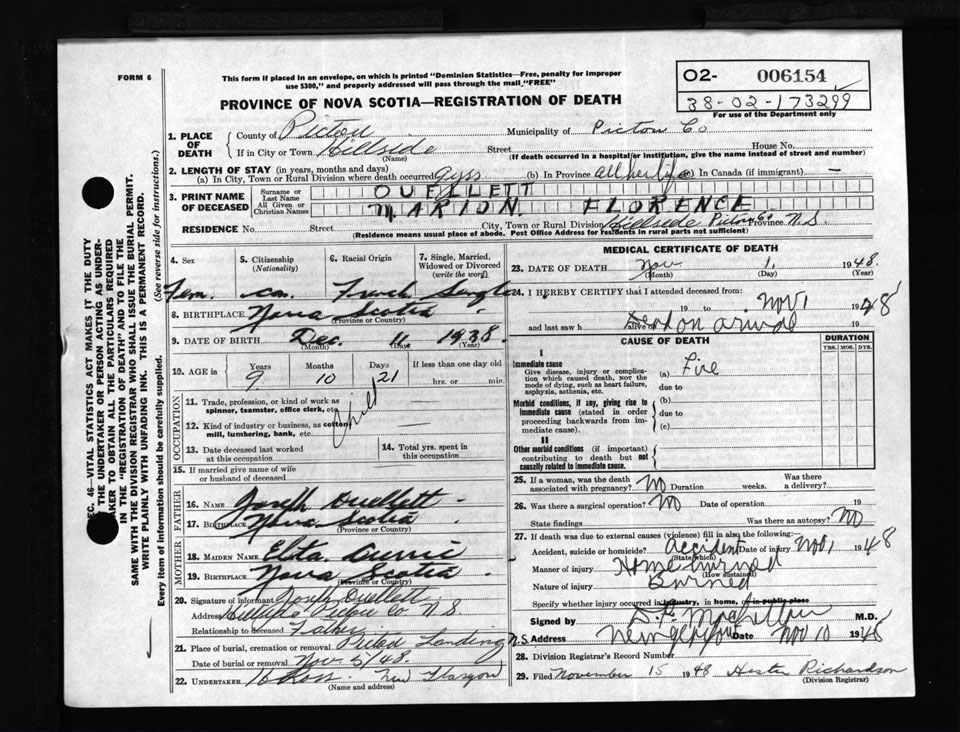 FORM 6
This form if placed in an envelope, on which is printed "Dominion Statistics—Free, penalty for improper
use $300," and properly addressed will pass through the mail "FREE"
PROVINCE OF NOVA SCOTIA—REGISTRATION OF DEATH
02- 006154
38-02-173299
For use of the Department only
1. PLACE OF DEATH
County of Pictou Municipality of Pictou Co
If in City or Town Hillside Street House No.
(Name) (If death occurred in a hospital or institution, give the name instead of street and number)
2. LENGTH OF STAY (in years, months and days)
(a) In City, Town or Rural Division where death occurred 9yrs (b) In Province all her life (c) In Canada (if immigrant) —
3. PRINT NAME OF DECEASED
Surname or Last Name OUELLETT
All Given or Christian Names MARION FLORENCE
RESIDENCE No. Street City, Town or Rural Division Hillside Pictou Co Province N.S.
(Residence means usual place of abode. Post Office Address for residents in rural parts not sufficient)
4. Sex
5. Citizenship
(Nationality)
6. Racial Origin
7. Single, Married, Widowed or Divorced
(write the word)
Fem. can. French Single
8. BIRTHPLACE Nova Scotia
(Province or Country)
9. DATE OF BIRTH Dec. 11 1938
(Month) (Day) (Year)
10. AGE in Years Months Days If less than one day old
9 10 21 hrs. or min.
OCCUPATION
11. Trade, profession, or kind of work as
spinner, teamster, office clerk, etc.
12. Kind of industry or business, as cotton
mill, lumbering, bank, etc.
Child
13. Date deceased last worked
at this occupation
14. Total yrs. spent in
this occupation
15. If married give name of wife
or husband of deceased
FATHER
16. Name Joseph Ouellett
17. Birthplace Nova Scotia
(Province or Country)
MOTHER
18. MAIDEN NAME Elta Currie
19. BIRTHPLACE Nova Scotia
(Province or Country)
20. Signature of informant Joseph Ouellett
Address Hillside Pictou Co N.S
Relationship to deceased Father
21. Place of burial, cremation or removal Pictou Landing N.S.
Date of burial or removal Nov. 5/48.
22. UNDERTAKER H Ross New Glasgow
(Name and address)
MEDICAL CERTIFICATE OF DEATH
23. DATE OF DEATH Nov 1, 1948.
(Month) (Day) (Year)
24. I HEREBY CERTIFY that I attended deceased from:
19 to Nov 1 1948
and last saw h alive on Dead on arrival 19
CAUSE OF DEATH
DURATION
YRS. MOS. DYS.
I
Immediate cause
Give disease, injury or complication which caused death, not the mode of dying, such as heart failure, asphyxia, asthenia, etc.
(a) Fire
due to
Morbid conditions, if any, giving rise to immediate cause (stated in order proceeding backwards from immediate cause).
(b)
due to
(c)
II
Other morbid conditions (if important) contributing to death but not causally related to immediate cause.
25. If a woman, was the death
associated with pregnancy? No Duration weeks. Was there a delivery?
26. Was there a surgical operation? No Date of operation 19
State findings Was there an autopsy? No
27. If death was due to external causes (violence) fill in also the following:
Accident, suicide or homicide? Accident Date of injury Nov 1 1948
(State which)
Manner of injury Home burned
(How sustained)
Nature of injury Burned
Specify whether injury occurred in industry, in home, or in public place
Signed by M.D.
Address New Glasgow Date Nov 10 1948
28. Division Registrar's Record Number
29. Filed November 15 1948 Hester Richardson
(Division Registrar)
SEC. 46—VITAL STATISTICS ACT MAKES IT THE DUTY
OF THE UNDERTAKER OR PERSON ACTING AS UNDERTAKER
TO OBTAIN ALL THE PARTICULARS REQUIRED
IN THE "REGISTRATION OF DEATH" AND TO FILE THE
SAME WITH THE DIVISION REGISTRAR WHO SHALL ISSUE THE BURIAL PERMIT.
WRITE PLAINLY WITH UNFADING INK. THIS IS A PERMANENT RECORD.
Every item of information should be carefully supplied. (See reverse side for instructions.)